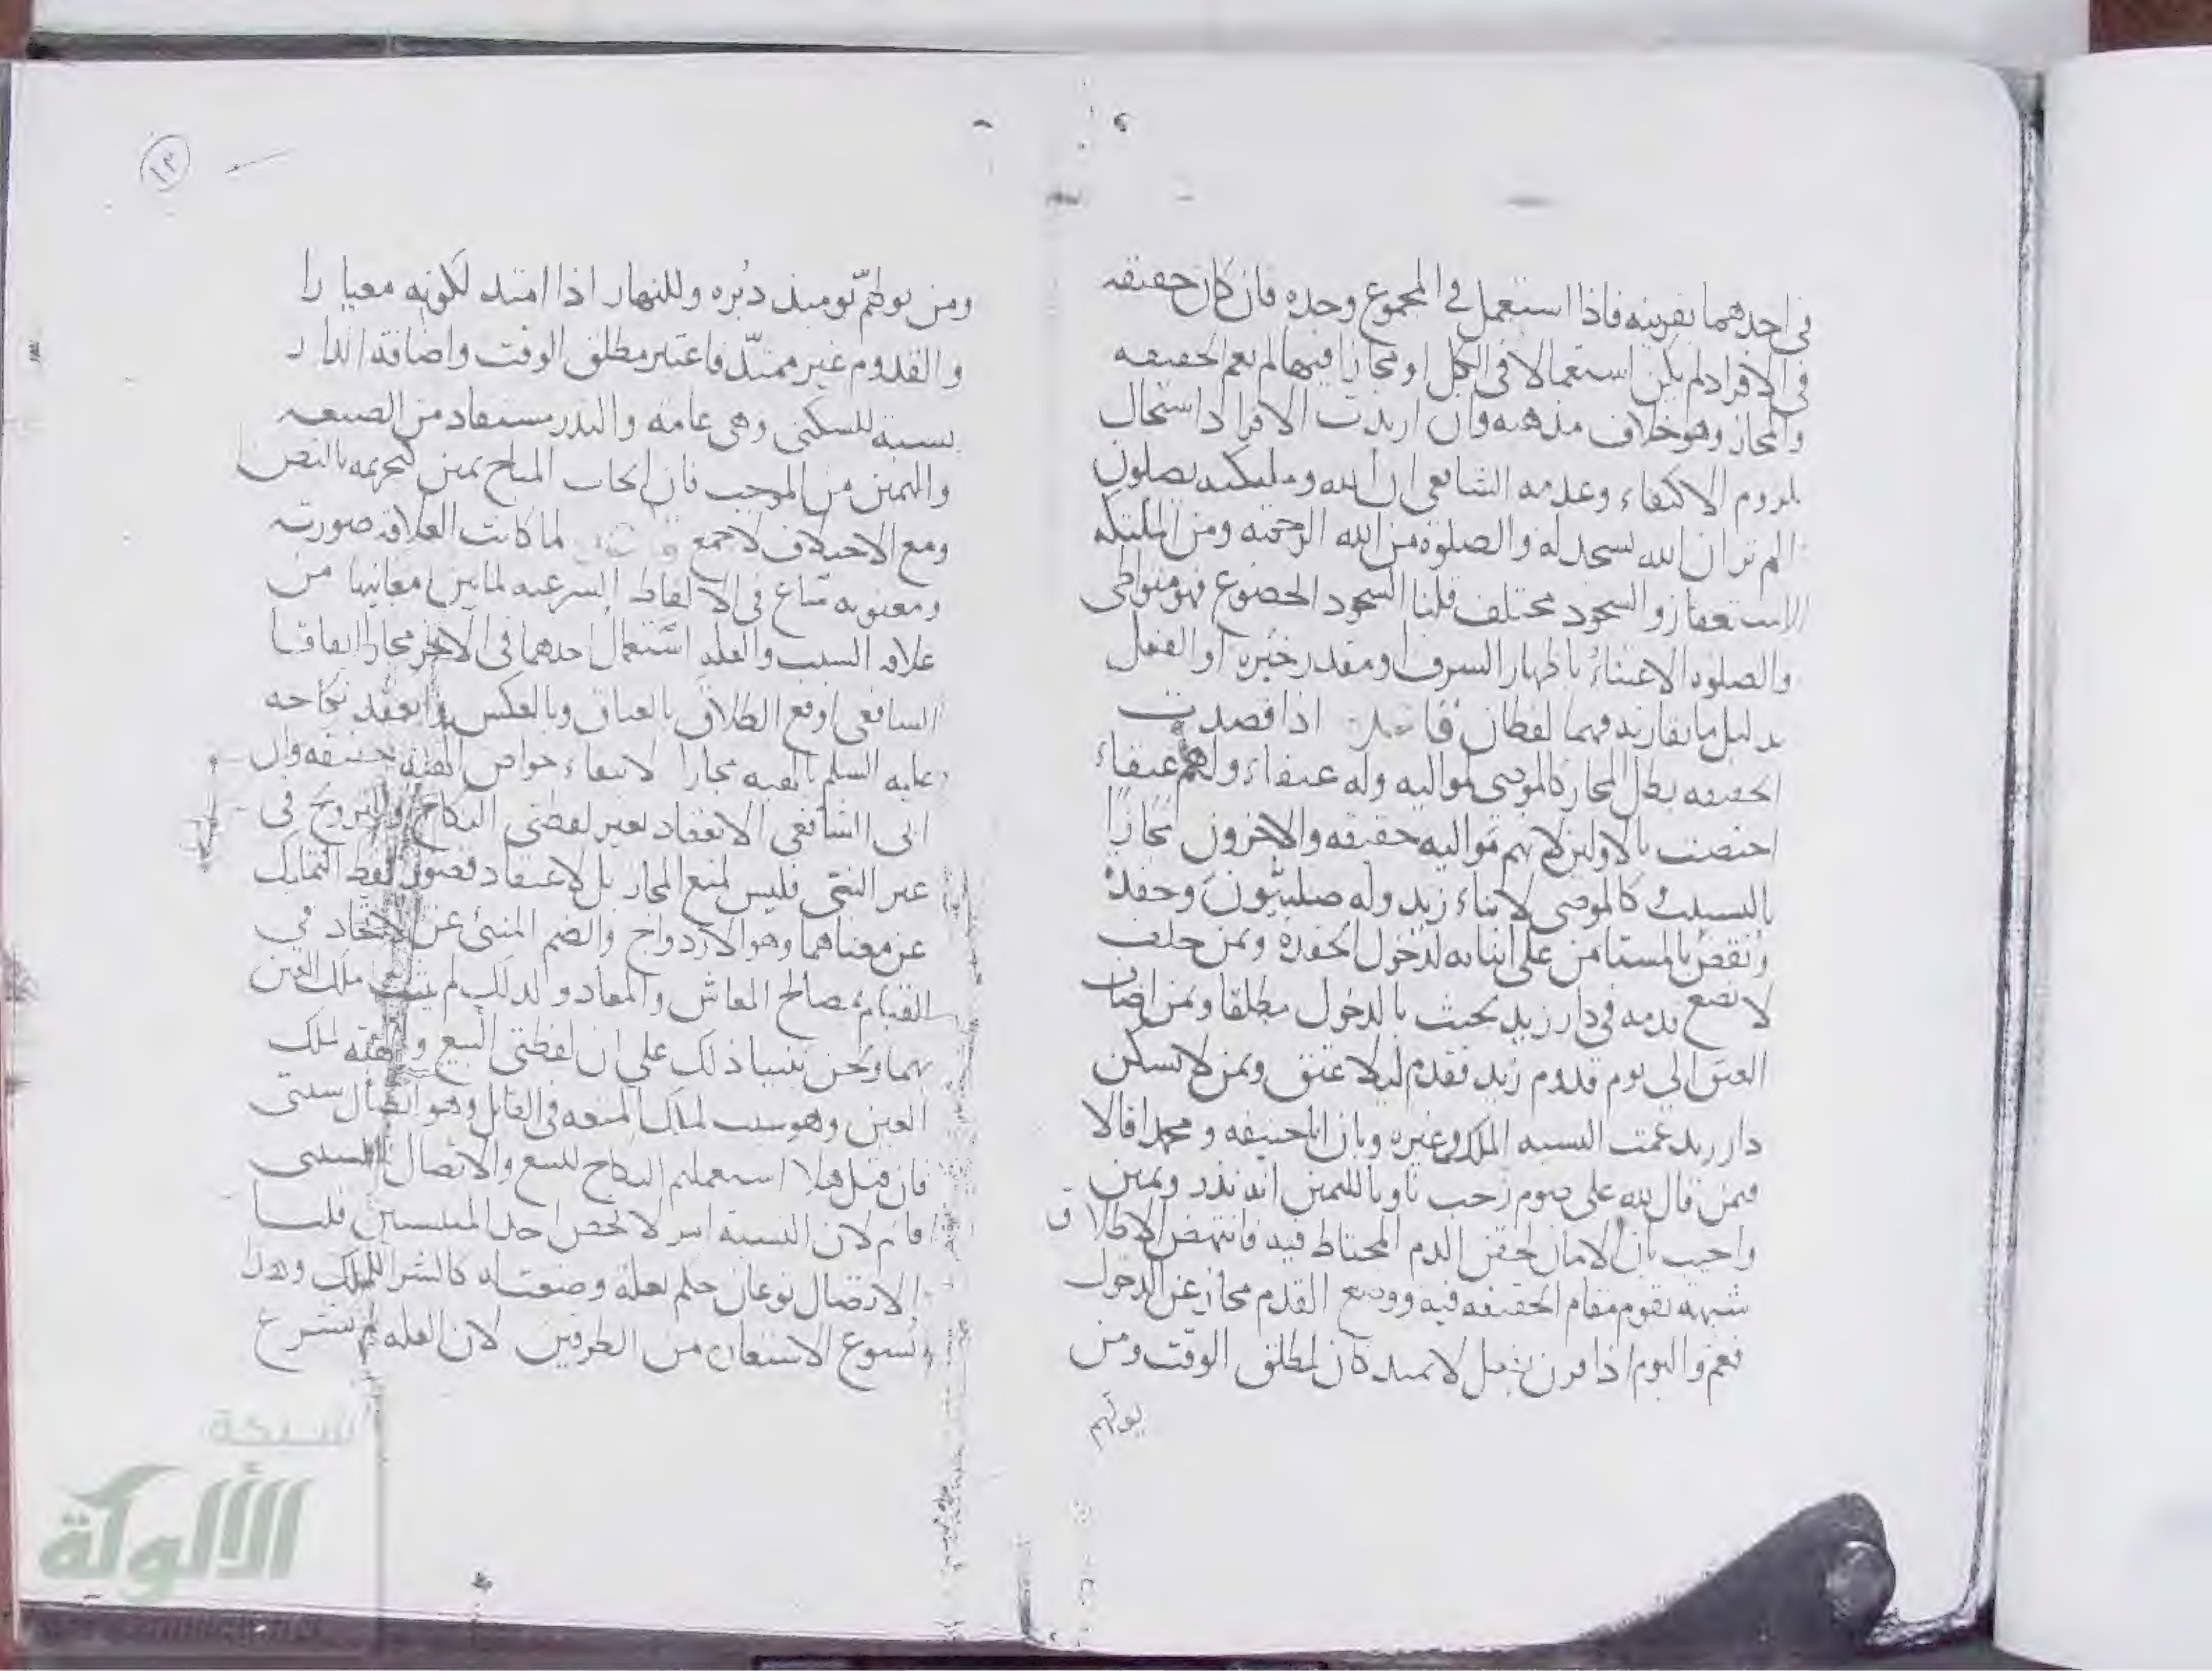 في احدهما بقرينه فاذا استعمل في المجموع وحده فان كان حقيقه
في الافراد لم يكن استعمالا في الكل او مجازا فيها لم يعم الحقيقه
والمجاز وهو خلاف مذهبه وان اريدت الافراد استحال
لزوم الاكتفاء وعدمه الشافعي ان الله وملئكته يصلون
الم تر ان الله يسجد له والصلوة من الله الرحمة ومن الملئكه
الاستغفار والسجود مختلف قلنا السجود الخضوع فهو متواطى
والصلوه الاعتناء باظهار الشرف او مقدر خبره او الفعل
بدليل ما يقارنه فهما لفظان قاعدة اذا قصدت
الحقيقه بطل المجاز كالموصي لمواليه وله عتقاء ولهم عتقاء
اختصت بالاولين لانهم مواليه حقيقه والاخرون مجازا
بالتسبيب كالموصي لابناء زيد وله صلبيون وحفدة
ونقض بالمستامن على ابنائه لدخول الحفدة وبمن حلف
لا يضع قدمه في دار زيد يحنث بالدخول مطلقا وبمن اضاف
العتق الى يوم قدوم زيد فقدم ليلا عتق وبمن لا يسكن
دار زيد عمت النسبه الملك وغيره وبان ابا حنيفه ومحمدا قالا
فيمن قال لله علي صوم رجب ناويا لليمين انه نذر ويمين
واجيب بان الامان لحقن الدم المحتاط فيه فانتهض الاطلاق
شبهة تقوم مقام الحقيقه فيه ووضع القدم مجاز عن الدخول
فعم واليوم اذا قرن بفعل لا يمتد كان لمطلق الوقت ومن
يولهم
١٣
ومن يولهم يومئذ دبره وللنهار اذا امتد لكونه معيارا
والقدوم غير ممتد فاعتبر مطلق الوقت واضافة الدار
نسبة للسكنى وهي عامة والنذر مستفاد من الصيغه
واليمين من الموجب فان ايجاب المباح يمين كتحريمه بالنص
ومع الاختلاف لا جمع لما كانت العلاقه صورية
ومعنويه شاع في الالفاظ الشرعيه لما بين معانيها من
علاقة السبب والعله استعمال احدهما في الاخر مجازا اتفاقا
الشافعي اوقع الطلاق بالعتاق وبالعكس وانعقد نكاحه
عليه السلم بالهبه مجازا لانتفاء خواص الهبه حقيقه وان
ابى الشافعي الانعقاد بغير لفظتي النكاح والتزويج في
غير النبي فليس لمنع المجاز بل لاعتقاد قصور لفظ التمليك
عن معناهما وهو الازدواج والضم المنبئ عن الاتحاد في
القيام بمصالح المعاش والمعاد ولذلك لم يثبت ملك العين
بهما ونحن بنينا ذلك على ان لفظتي البيع والهبه لملك
العين وهو سبب لملك المتعه في القابل وهو اتصال سببي
فان قيل هلا استعملتم النكاح للبيع والاتصال السببي
قائم لان النسبة امر لا يخص احد المنتسبين قلنا
الاتصال نوعان حكم بعلة وضعت له كالشرا للملك وهذا
يسوغ الاستعارة من الطرفين لان العله لم تشرع
شبكة
الألوكة